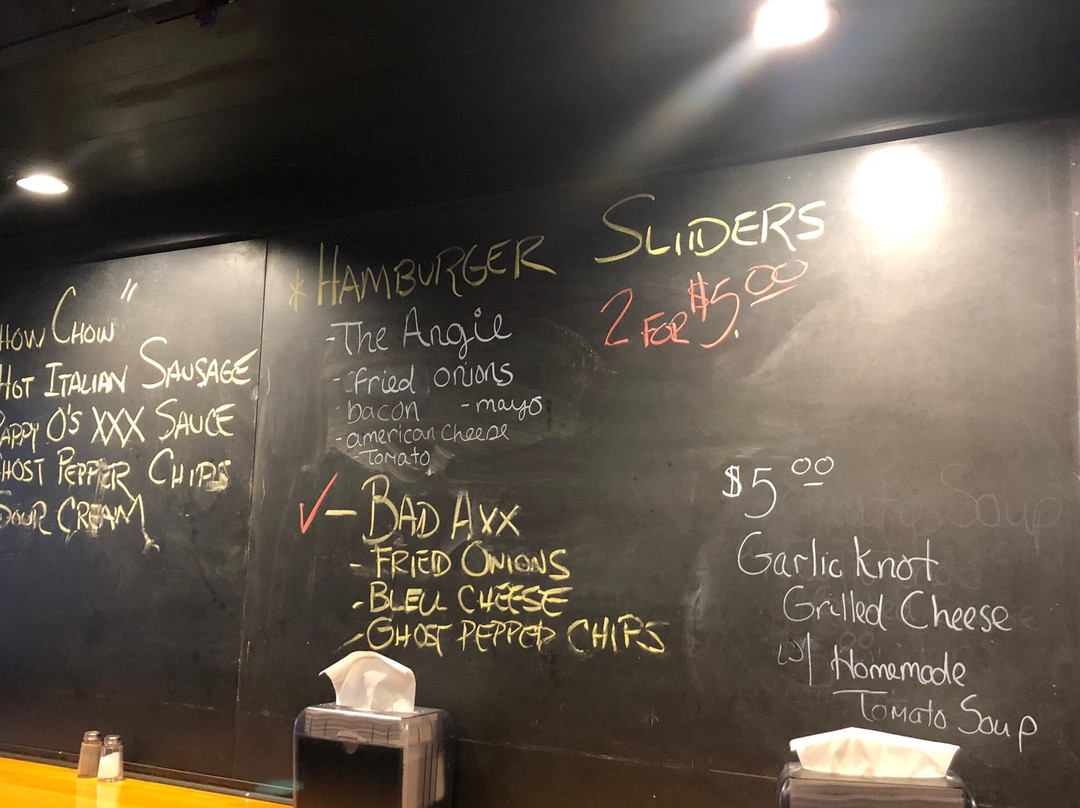 HOW CHOW"
HOT ITALIAN SAUSAGE
PAPPY O'S XXX SAUCE
GHOST PEPPER CHIPS
SOUR CREAM
* HAMBURGER SLIDERS
2 FOR $5.00
- The Angie
- fried onions
- bacon - mayo
- american cheese
- Tomato
✓ - BAD AXX
- FRIED ONIONS
- BLEU CHEESE
- GHOST PEPPER CHIPS
$5 00
Garlic Knot
Grilled Cheese
w/ Homemade
Tomato Soup